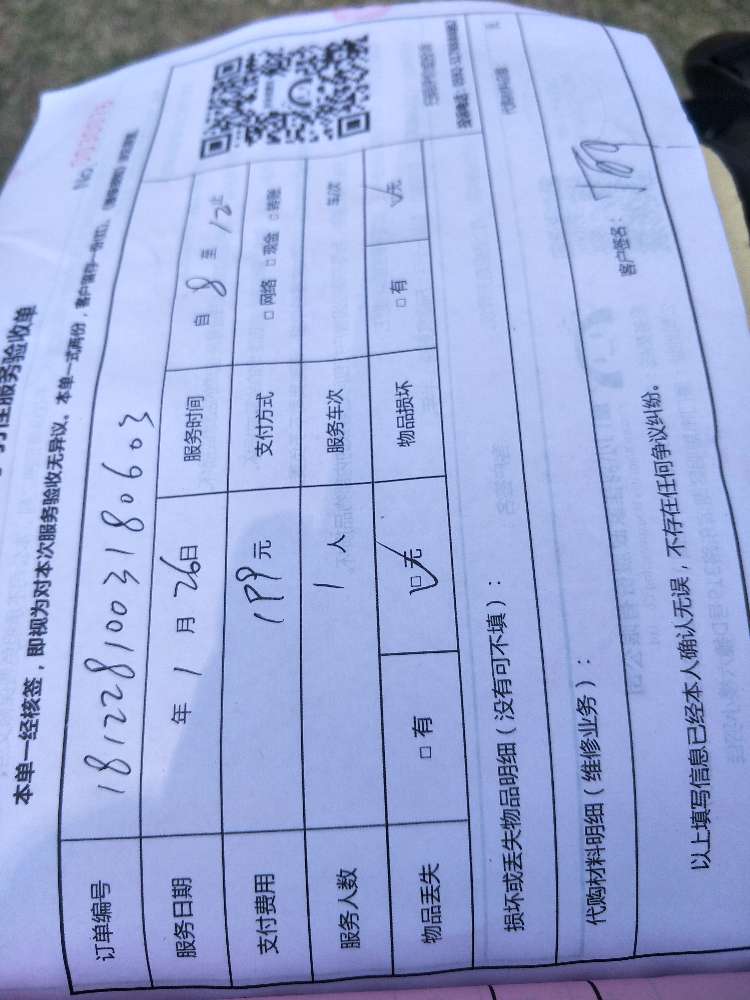 性服务验收单
本单一经核签，即视为对本次服务验收无异议。本单一式两份，客户留存一份
No
订单编号 1812281003180603
服务日期 年 1 月 26 日 服务时间 自 8 至 12 止
支付费用 199 元 支付方式 □ 网络 □ 现金 □ 转账
服务人数 1 人 服务车次 车次
物品丢失 □ 有 □ 无 物品损坏 □ 有 无
损坏或丢失物品明细（没有可不填）：
代购材料明细（维修业务）：
以上填写信息已经本人确认无误，不存在任何争议纠纷。
客户签名：